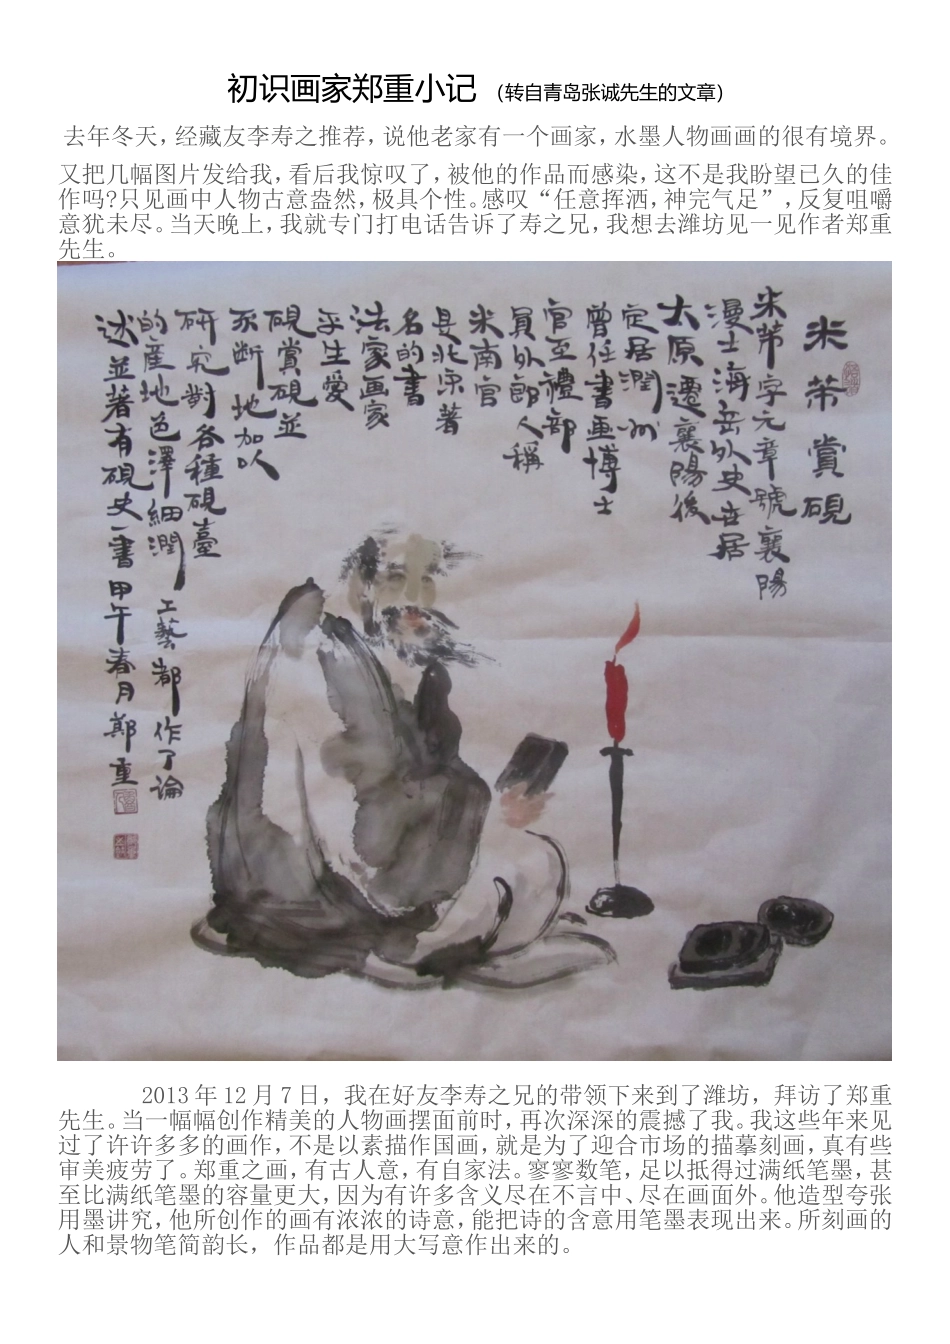 初识画家郑重小记 （转自青岛张诚先生的文章）
去年冬天，经藏友李寿之推荐，说他老家有一个画家，水墨人物画画的很有境界。
又把几幅图片发给我，看后我惊叹了，被他的作品而感染，这不是我盼望已久的佳
作吗?只见画中人物古意盎然，极具个性。感叹“任意挥洒，神完气足”，反复咀嚼
意犹未尽。当天晚上，我就专门打电话告诉了寿之兄，我想去潍坊见一见作者郑重
先生。
米芾賞硯
米芾字元章號襄陽
漫士海岳外史世居
太原遷襄陽後
定居潤州
曾任書画博士
官至禮部
員外郎人稱
米南宫
是北宋著
名的書
法家画家
平生愛
硯賞硯並
不断地加以
研究對各種硯臺
的產地色澤細潤工藝都作了論
述並著有硯史一書甲午春月鄭重
2013 年 12 月 7 日，我在好友李寿之兄的带领下来到了潍坊，拜访了郑重
先生。当一幅幅创作精美的人物画摆面前时，再次深深的震撼了我。我这些年来见
过了许许多多的画作，不是以素描作国画，就是为了迎合市场的描摹刻画，真有些
审美疲劳了。郑重之画，有古人意，有自家法。寥寥数笔，足以抵得过满纸笔墨，甚
至比满纸笔墨的容量更大，因为有许多含义尽在不言中、尽在画面外。他造型夸张
用墨讲究，他所创作的画有浓浓的诗意，能把诗的含意用笔墨表现出来。所刻画的
人和景物笔简韵长，作品都是用大写意作出来的。